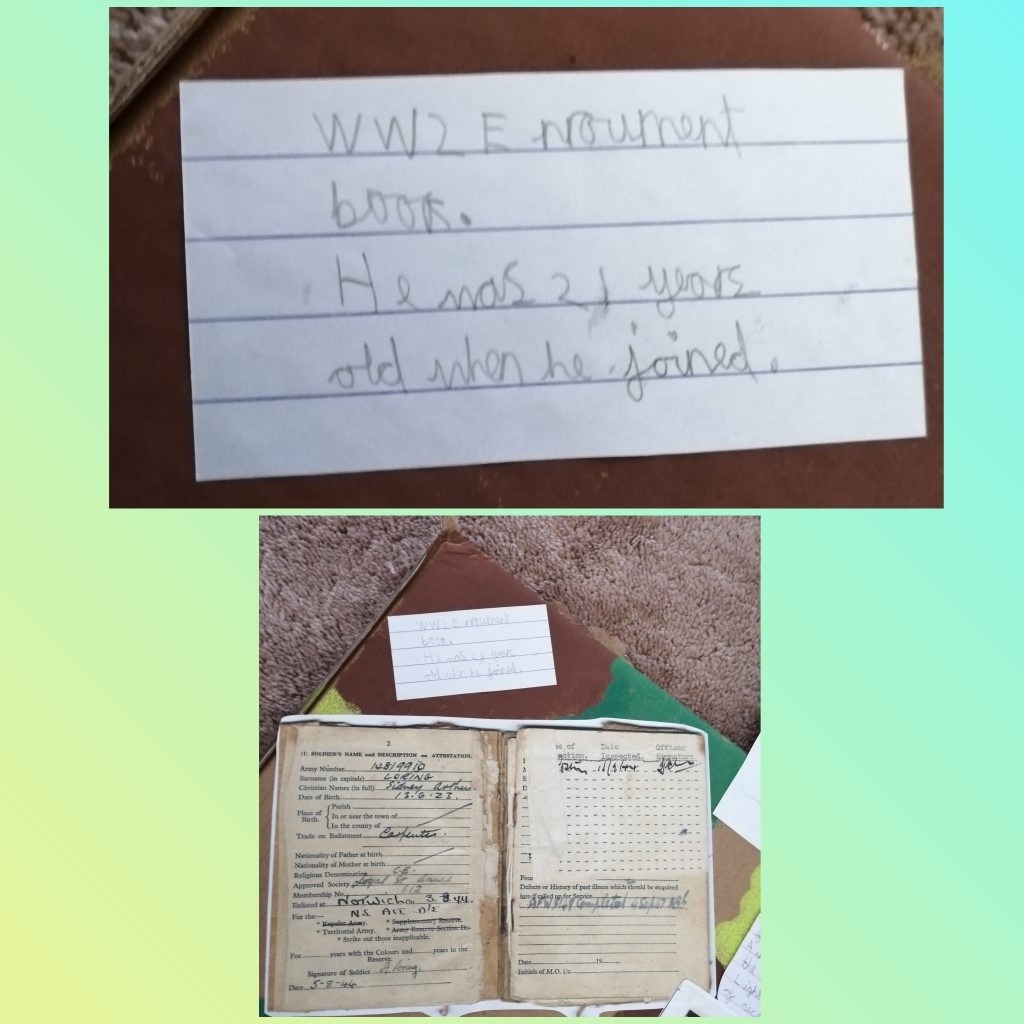 WW2 Enroument
book.
He was 21 years
old when he joined.
WW2 Enroument
book.
He was 21 years
old when he joined.
2
(1) SOLDIER'S NAME and DESCRIPTION on ATTESTATION.
Army Number
Surname (in capitals) LORING
Christian Names (in full) Sidney Arthur
Date of Birth 13.6.23.
Place of Birth.
Parish
In or near the town of
In the county of
Trade on Enlistment Carpenter.
Nationality of Father at birth
Nationality of Mother at birth
Religious Denomination C.E.
Approved Society
Membership No. 112
Enlisted at Norwich On 3.8.44.
For the:—
N.S. Act
* Regular Army. * Supplementary Reserve.
* Territorial Army. * Army Reserve Section D.
* Strike out those inapplicable.
For years with the Colours and years in the
Reserve.
Signature of Soldier S. Loring.
Date 5-8-44
of Date Officer
Inspected.
Defects or History of past illness which should be enquired
into if called up for Service
Date 19
Initials of M.O. i/c